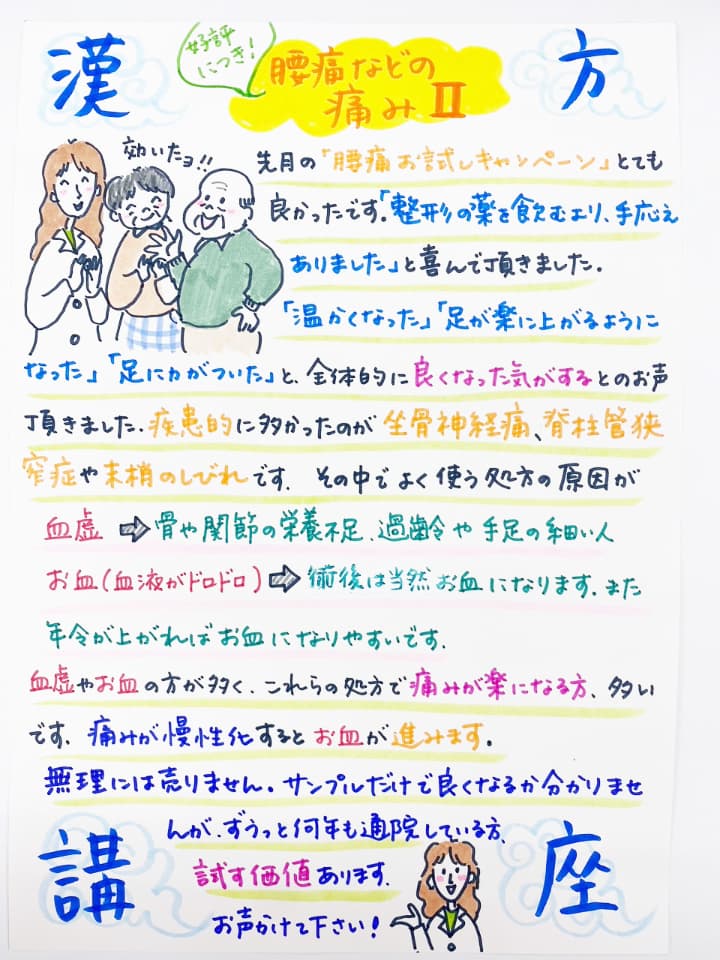 漢方
好評
につき!
腰痛などの
痛みⅡ
効いたヨ!!
先月の「腰痛お試しキャンペーン」とても
良かったです。「整形の薬を飲むより、手応え
ありました」と喜んで頂きました。
「温かくなった」「足が楽に上がるように
なった」「足に力がついた」と、全体的に良くなった気がするとのお声
頂きました。疾患的に多かったのが坐骨神経痛、脊柱管狭
窄症や末梢のしびれです。その中でよく使う処方の原因が
血虚 ⇨ 骨や関節の栄養不足、過齢や手足の細い人
お血(血液がドロドロ) ⇨ 術後は当然お血になります。また
年令が上がればお血になりやすいです。
血虚やお血の方が多く、これらの処方で痛みが楽になる方、多い
です。痛みが慢性化するとお血が進みます。
無理には売りません。サンプルだけで良くなるか分かりませ
んが、ずうっと何年も通院している方、
試す価値あります。
お声かけて下さい!
講座